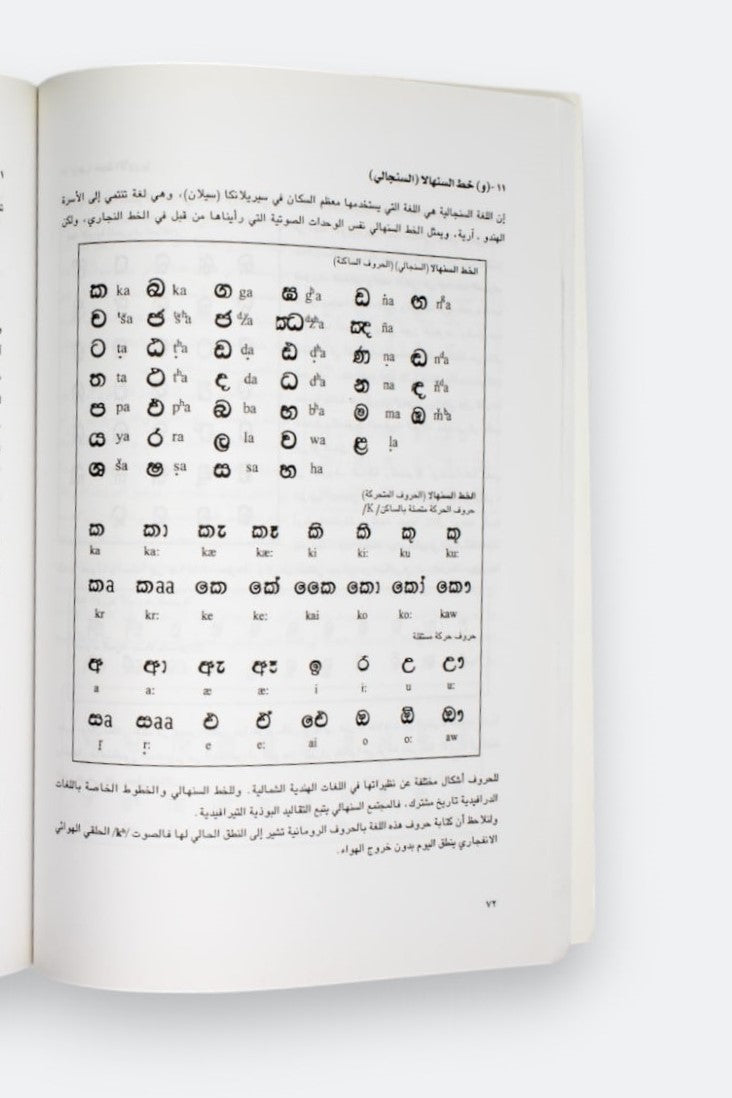 ١١-(و) خط السنهالا (السنجالي)
إن اللغة السنجالية هي اللغة التي يستخدمها معظم السكان في سيريلانكا (سيلان)، وهي لغة تنتمي إلى الأسرة
الهندو ـ آرية، ويمثل الخط السنهالي نفس الوحدات الصوتية التي رأيناها من قبل في الخط النجاري، ولكن
الخط السنهالا (السنجالي) (الحروف الساكنة)
ක ka ඛ ka ග ga ඝ gʰa ඩ ṅa ඟ
ච ᵗša ඡ ජ ඣ ඤ ña
ට ṭa ඨ ṭʰa ඩ ḍa ඪ ḍʰa ණ ṇa ඬ
ත ta ථ tʰa ද da ධ dʰa න na ඳ
ප pa ඵ pʰa බ ba භ bʰa ම ma ඹ
ය ya ර ra ල la ව wa ළ ḷa
ශ ša ෂ ṣa ස sa හ ha
الخط السنهالا (الحروف المتحركة)
حروف الحركة متصلة بالساكن/ K/
ක කා කැ කෑ කි කී කු කූ
ka ka: kæ kæ: ki ki: ku ku:
කa කaa කෙ කේ කෛ කො කෝ කෞ
kr kr: ke ke: kai ko ko: kaw
حروف حركة مستقلة
අ ආ ඇ ඈ ඉ ඊ උ ඌ
a a: æ æ: i i: u u:
සa සaa එ ඒ ඓ ඔ ඕ ඖ
ṛ ṛ: e e: ai o o: aw
للحروف أشكال مختلفة عن نظيراتها في اللغات الهندية الشمالية. وللخط السنهالي والخطوط الخاصة باللغات
الدرافيدية تاريخ مشترك، فالمجتمع السنهالي يتبع التقاليد البوذية التيرافيدية.
ولنلاحظ أن كتابة حروف هذه اللغة بالحروف الرومانية تشير إلى النطق الحالي لها فالصوت /kʰ/ الحلقي الهوائي
الانفجاري ينطق اليوم بدون خروج الهواء.
٧٢